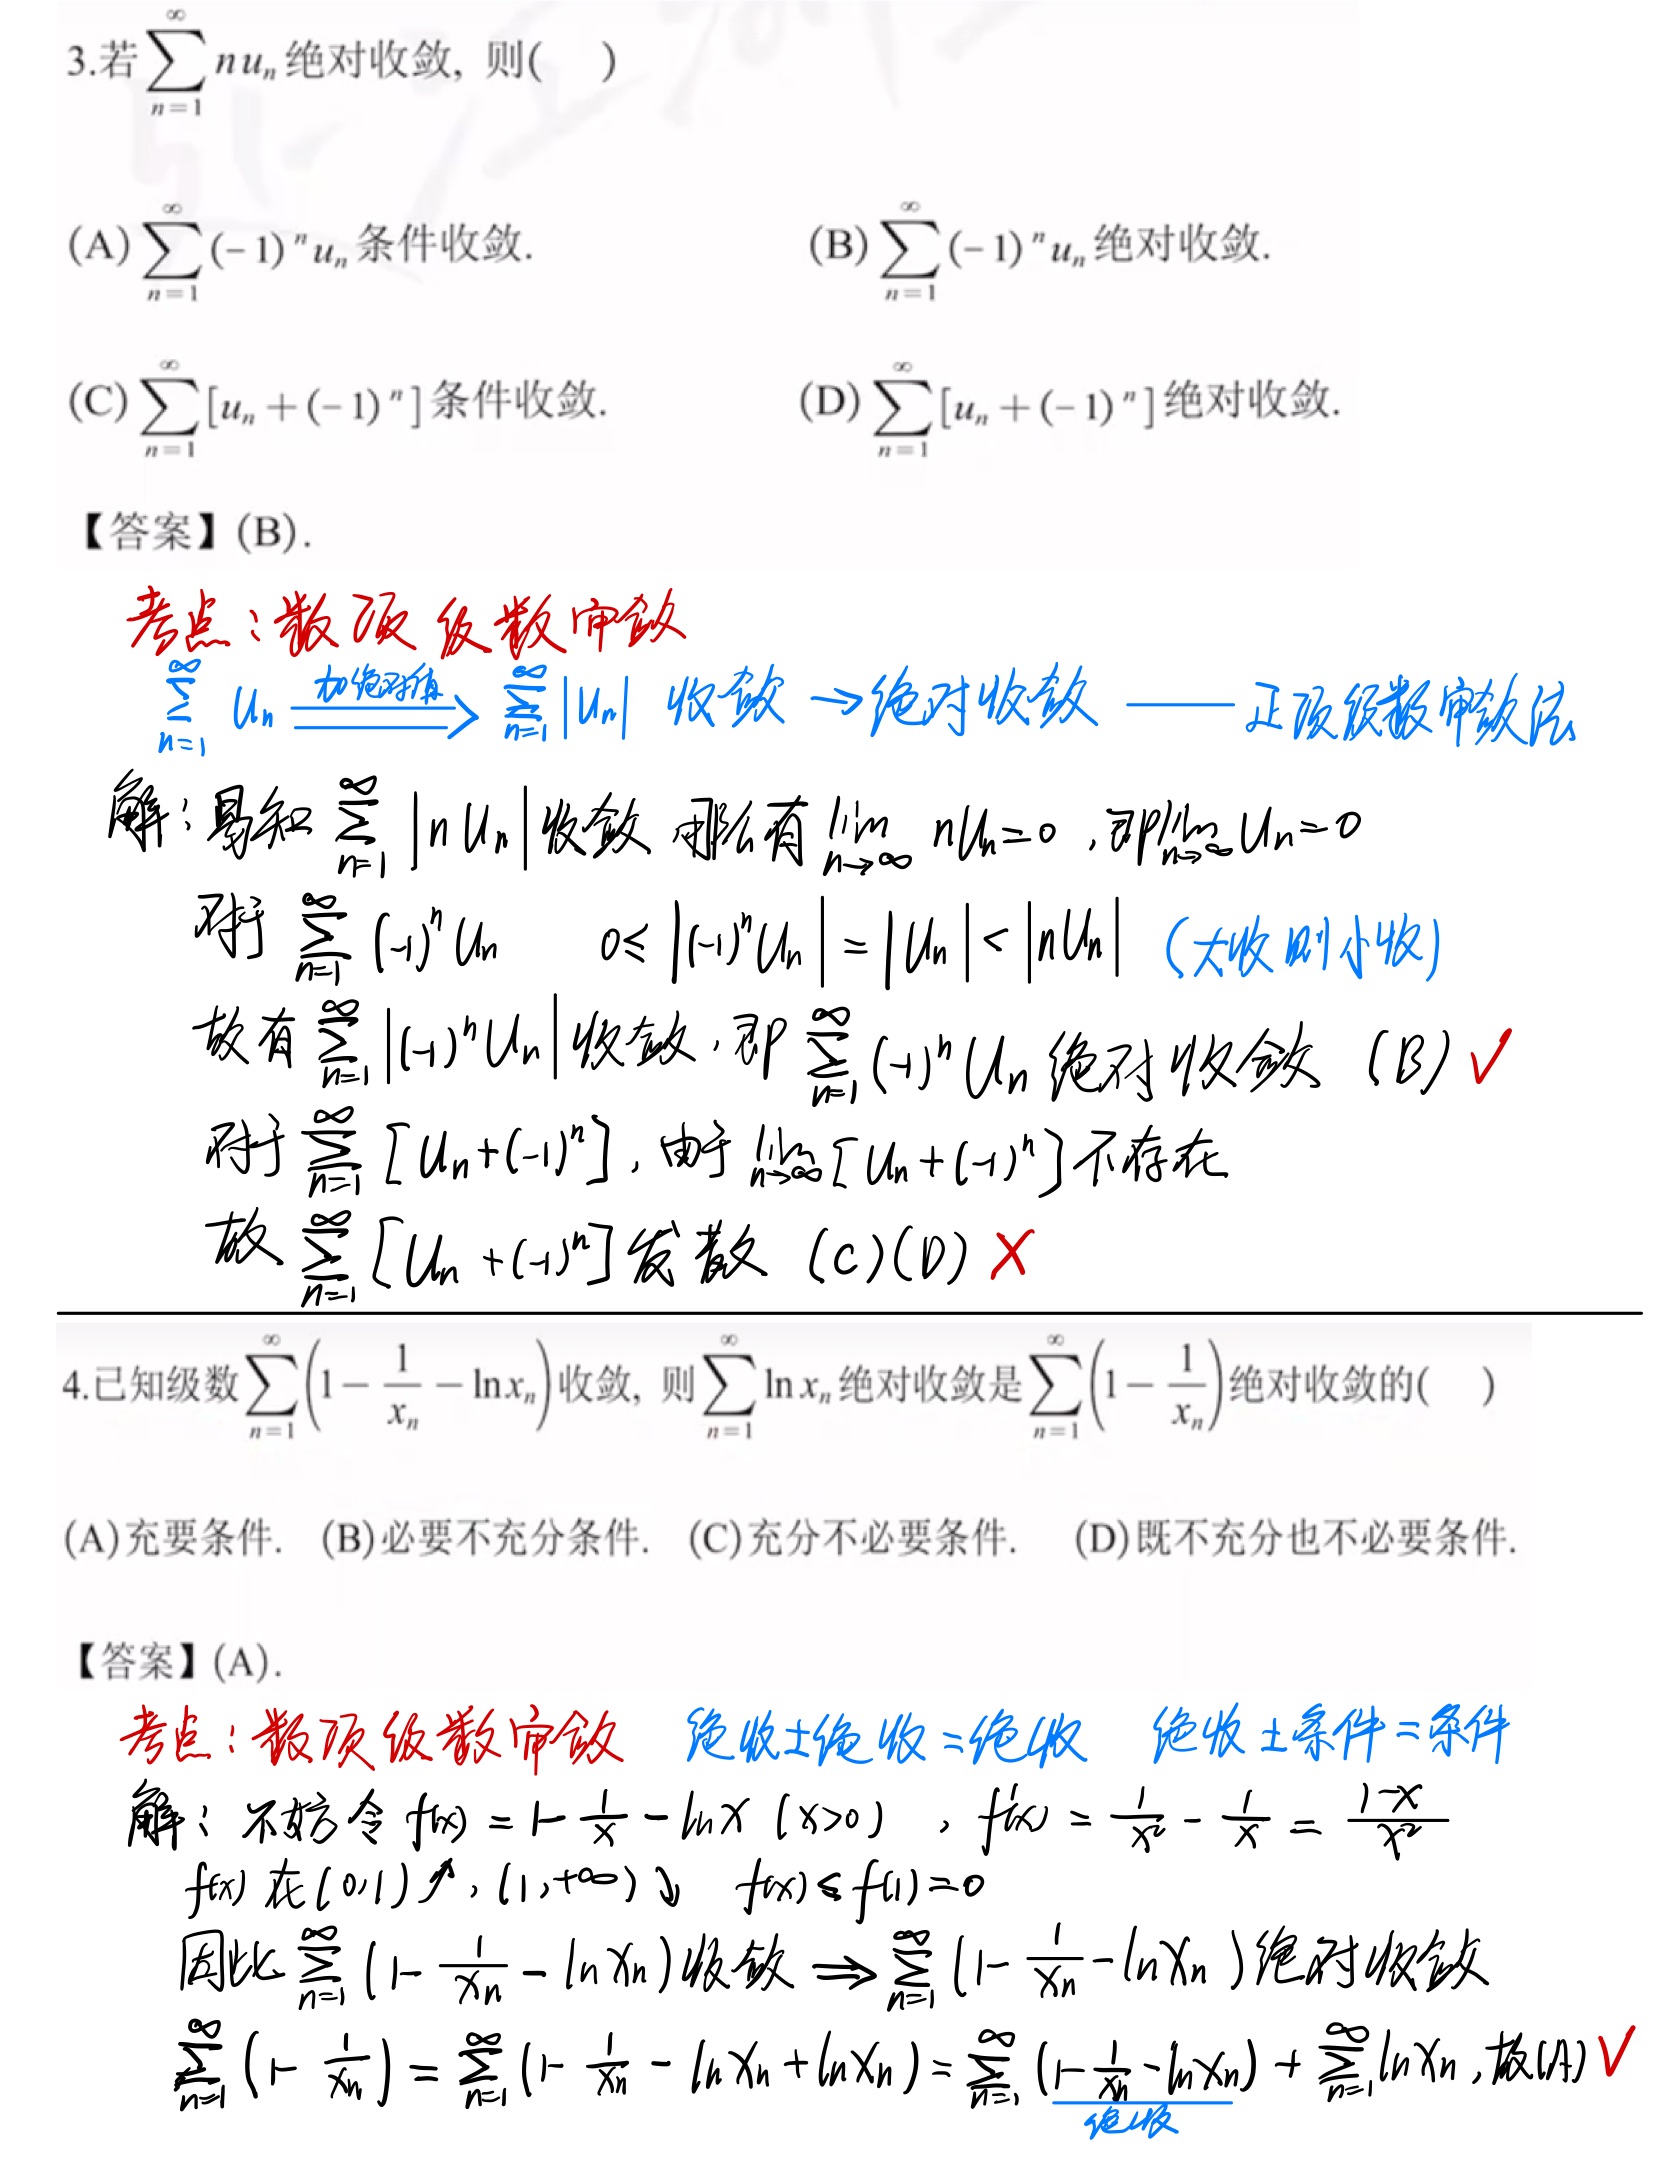 3.若∑_{n=1}^{∞} nu_n 绝对收敛, 则(    )
(A) ∑_{n=1}^{∞} (-1)^n u_n 条件收敛.    (B) ∑_{n=1}^{∞} (-1)^n u_n 绝对收敛.
(C) ∑_{n=1}^{∞} [u_n + (-1)^n] 条件收敛.    (D) ∑_{n=1}^{∞} [u_n + (-1)^n] 绝对收敛.
【答案】(B).
考点：数项级数审敛
∑_{n=1}^{∞} U_n ⟹(加绝对值) ∑_{n=1}^{∞} |U_n| 收敛 → 绝对收敛 —— 正项级数审敛法
解：易知 ∑_{n=1}^{∞} |n U_n| 收敛 那么有 lim_{n→∞} nU_n = 0 , 即 lim_{n→∞} U_n = 0
对于 ∑_{n=1}^{∞} (-1)^n U_n    0 ≤ |(-1)^n U_n| = |U_n| < |nU_n| (大收则小收)
故有 ∑_{n=1}^{∞} |(-1)^n U_n| 收敛, 即 ∑_{n=1}^{∞} (-1)^n U_n 绝对收敛 (B) ✓
对于 ∑_{n=1}^{∞} [U_n+(-1)^n], 由于 lim_{n→∞} [U_n+(-1)^n] 不存在
故 ∑_{n=1}^{∞} [U_n+(-1)^n] 发散 (C)(D) ×
4.已知级数∑_{n=1}^{∞} (1 - 1/x_n - ln x_n) 收敛, 则∑_{n=1}^{∞} ln x_n 绝对收敛是∑_{n=1}^{∞} (1 - 1/x_n) 绝对收敛的(    )
(A)充要条件.  (B)必要不充分条件.  (C)充分不必要条件.  (D)既不充分也不必要条件.
【答案】(A).
考点：数项级数审敛  绝收±绝收=绝收  绝收±条件=条件
解：不妨令 f(x) = 1 - 1/x - ln x (x>0) , f'(x) = 1/x² - 1/x = (1-x)/x²
f(x) 在(0,1)↗, (1,+∞)↘  f(x) ≤ f(1)=0
因此 ∑_{n=1}^{∞} (1 - 1/x_n - ln x_n) 收敛 ⟹ ∑_{n=1}^{∞} (1 - 1/x_n - ln x_n) 绝对收敛
∑_{n=1}^{∞} (1 - 1/x_n) = ∑_{n=1}^{∞} (1 - 1/x_n - ln x_n + ln x_n) = ∑_{n=1}^{∞} (1 - 1/x_n - ln x_n) + ∑_{n=1}^{∞} ln x_n , 故(A) ✓
绝收